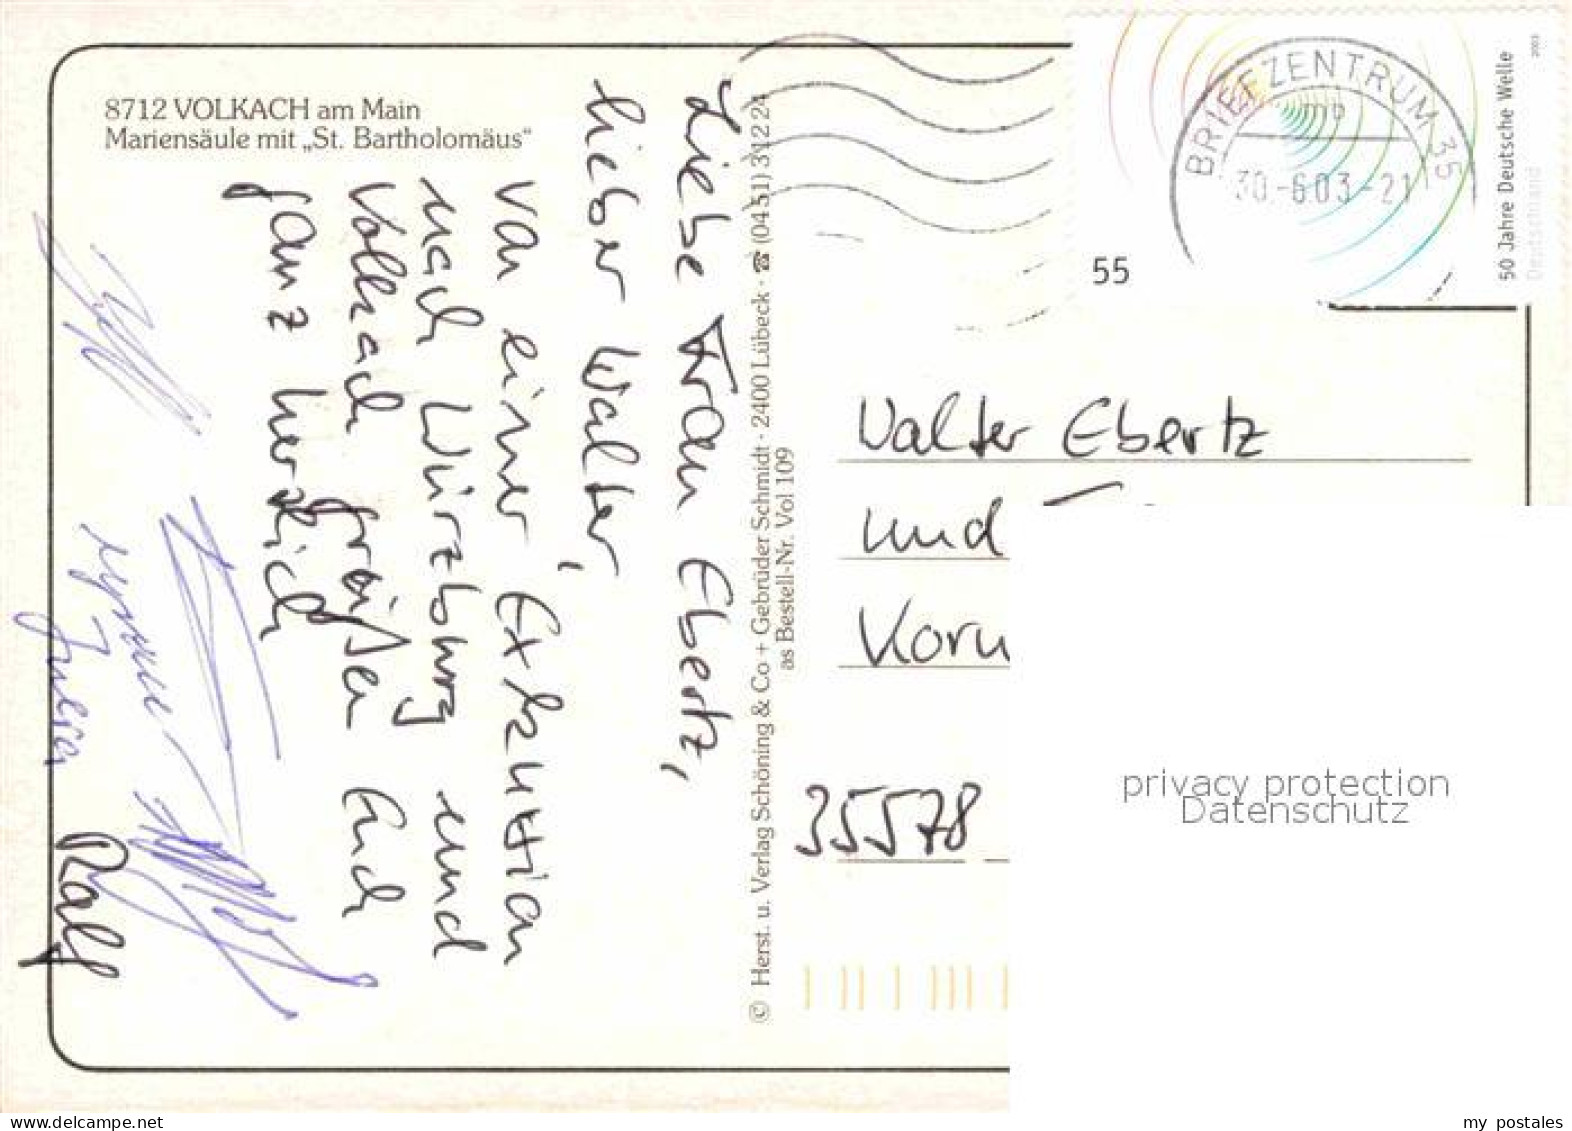 8712 VOLKACH am Main
Mariensäule mit „St. Bartholomäus“
Liebe Frau Ebertz,
lieber Walter,
von einer Exkursion
nach Würzburg und
Volkach grüßen Euch
ganz herzlich
Ralf
© Herst. u. Verlag Schöning & Co + Gebrüder Schmidt · 2400 Lübeck · ☎ (0451) 31 22 24
as Bestell-Nr. Vol 109
BRIEFZENTRUM 35
30.-6.03-21
55
50 Jahre Deutsche Welle
Deutschland
2003
Walter Ebertz
und
Korn
35578
privacy protection
Datenschutz
www.delcampe.net
my_postales